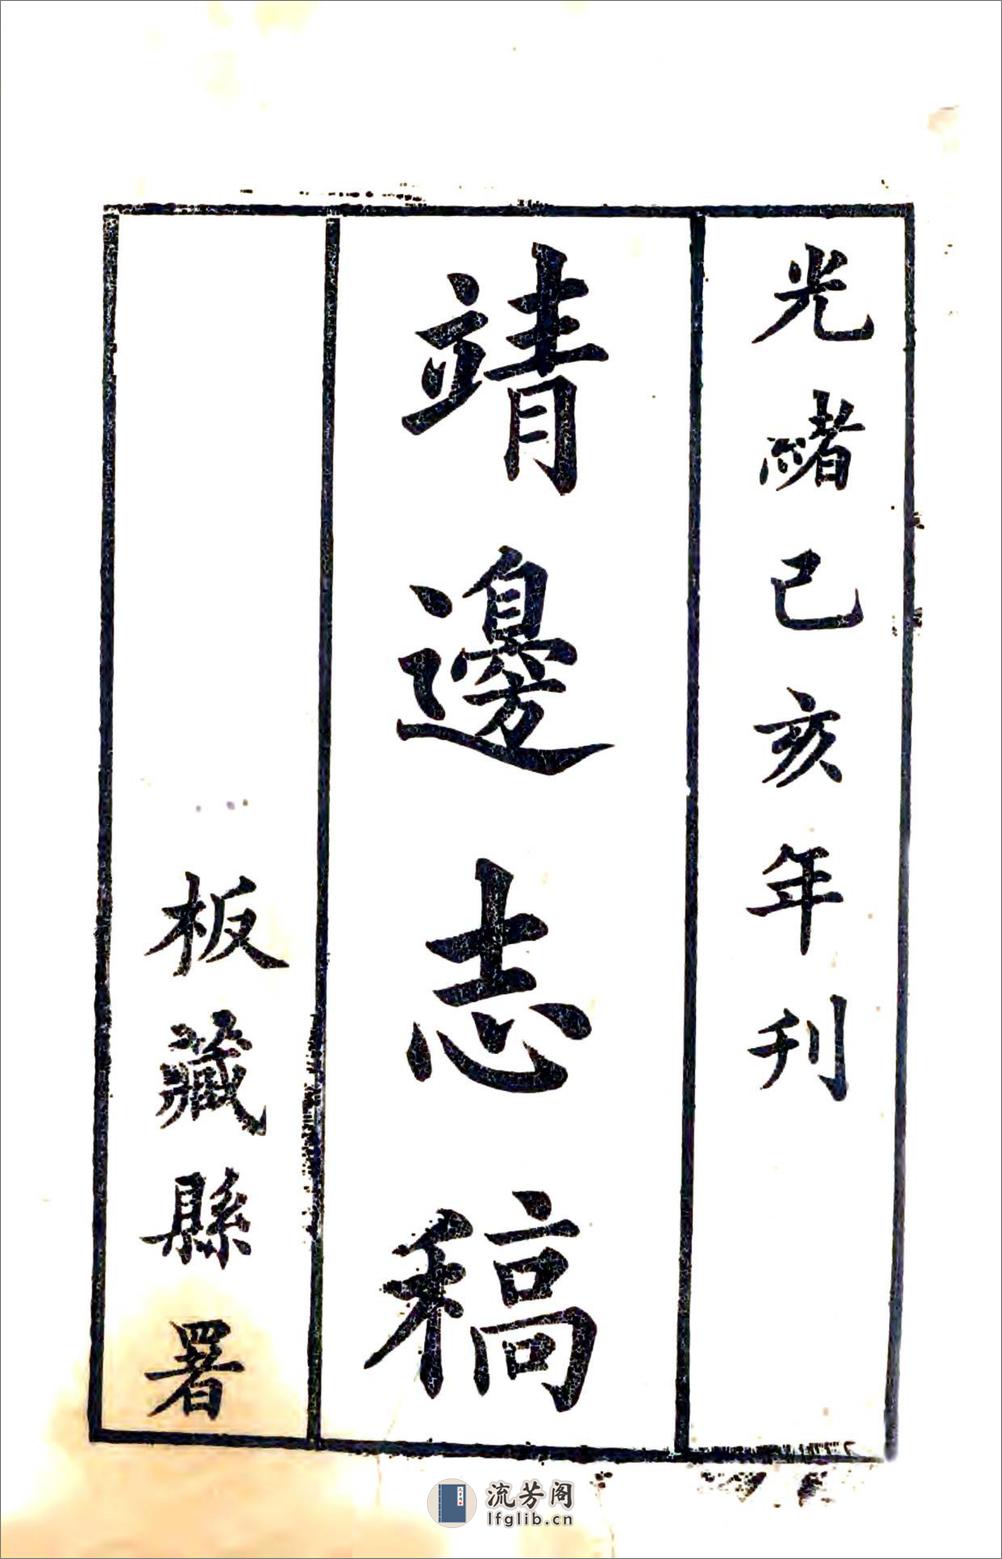 光緒己亥年刊
靖邊志稿
板藏縣署
流芳阁
lfglib.cn